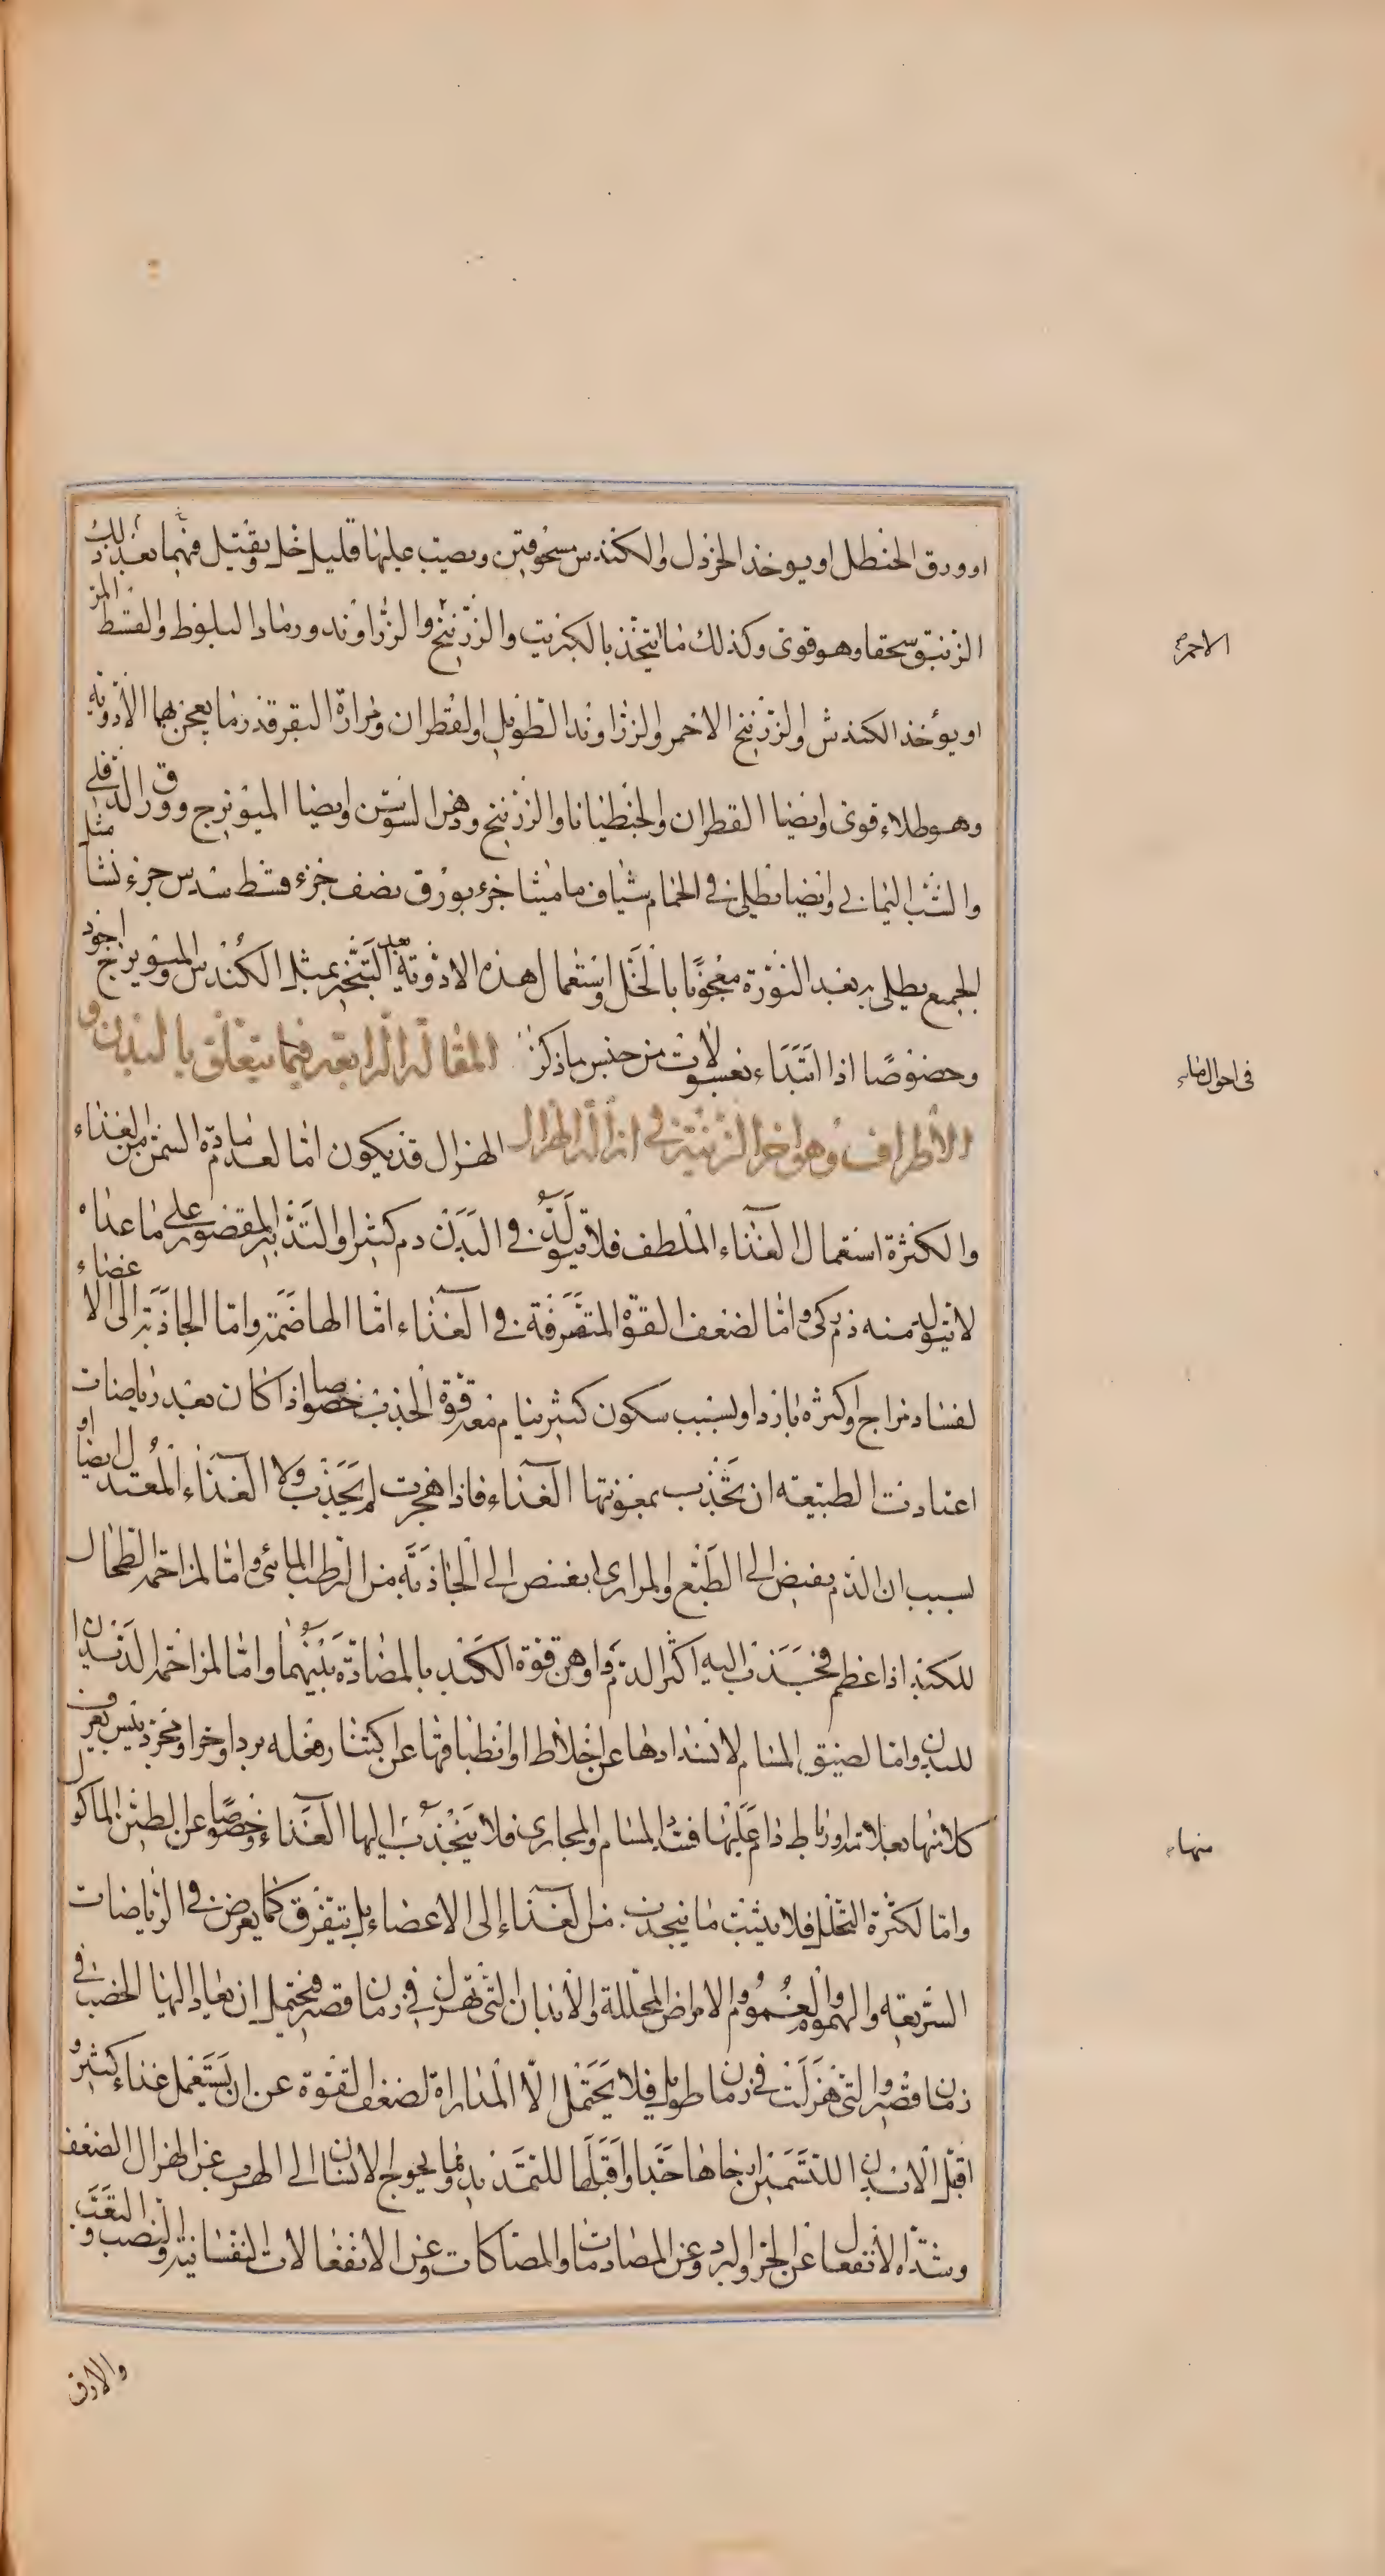 او ورق الحنظل او يوخذ الخردل والكندس مسحوقين ويصب عليها قليل خل ويقتل فيهما بعد ذلك
الزئبق سحقا وهو قوى وكذلك ما يتخذ بالكبريت والزرنيخ والزراوند ورماد البلوط والقسط المر
او يوخذ الكندش والزرنيخ الاحمر والزراوند الطويل والقطران ومرارة البقر قدر ما يعجن بهما الادوية
وهو طلاء قوى وايضا القطران والجنطيانا والزرنيخ ودهن السوسن وايضا الميويزج وورق الدفلى
والشب اليمانى وايضا يطلى فى الحمام شياف ماميثا جزء بورق نصف جزء قسط سدس جزء نشا مثل
الجميع يطلى به بعد النورة معجونا بالخل واستعمال هذه الادوية بعد التبخير بمثل الكندس والميويزج اجود
وخصوصا اذا ابتداء بغسولات من جنس ما ذكر المقالة الرابعة فيما يتعلق بالبدن و
الاطراف وهو اخر الزينة فى ازالة الهزال الهزال قد يكون اما لعدم مادة السمن من الغذاء
والكثرة استعمال الغذاء الملطف فلا يتولد فى البدن دم كثير او التدبير المقصور على ما عداه
لا يتولد منه دم زكى واما لضعف القوة المتصرفة فى الغذاء اما الهاضمة واما الجاذبة الى الاعضاء
لفساد مزاج واكثره بارد او لسبب سكون كثير ينام معه قوة الجذب خصوصا اذا كان بعد رياضات
اعتادت الطبيعة ان تجذب بمعونتها الغذاء فاذا هجرت لم يجذب ولا الغذاء المعتدل ايضا او
بسبب ان الدم يفيض الى الطبع والمرارى ابغض الى الجاذبة من الرطب المائى واما لمزاحمة الطحال
للكبد اذا عظم فجذب اليه اكثر الدم واوهن قوة الكبد بالمضادة بينهما واما لمزاحمة الديدان
للبدن واما لضيق المسام لانسدادها عن اخلاط او انطباقها عن اكتناز فعله برد او حر او مجرد يبس يعرف
كلا منها بعلاماته او رباط دام عليها فسد المسام والمجارى فلا ينجذب اليها الغذاء وخصوصا عن الطين الماكول
واما لكثرة التحلل فلا يثبت ما ينجذب من الغذاء الى الاعضاء بل يتفرق كما يعرض فى الرياضات
السريعة والهموم والغموم والامراض المحللة والابدان التى تهزل فى زمان قصير فيحتمل ان يعاد اليها الخصب فى
زمان قصير والتى هزلت فى زمان طويل فلا يحتمل الا المداراة لضعف القوة عن ان يستعمل غذاء كثير و
اقبل الابدان للتسمين ارخاها جلدا واقبلها للتمديد ومما يحوج الانسان الى الهرب عن الهزال الضعف
وشدة الانفعال عن الحر والبرد وعن المصادمات والمصاكات وعن الانفعالات النفسانية والنصب والتعب
والارق
الاحمر
فى احوال
منها